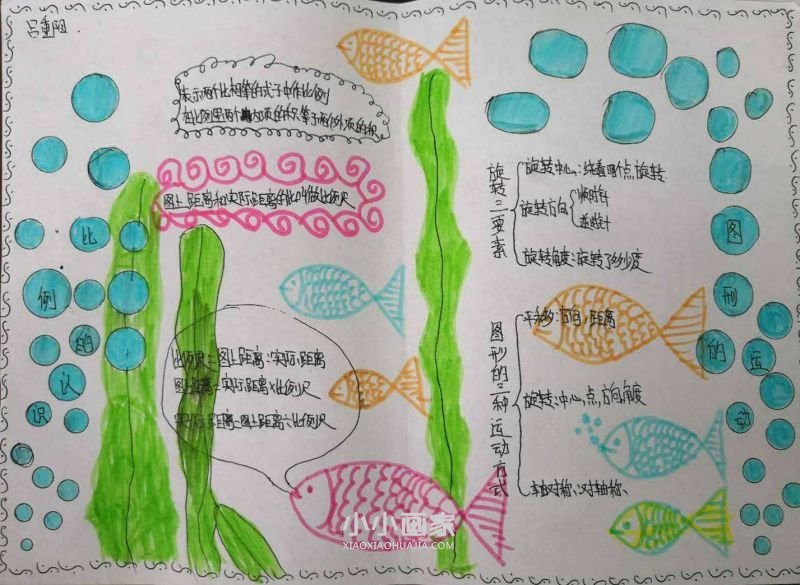 吕重阳
表示两个比相等的式子叫作比例
在比例里两个内项的积等于两个外项的积
图上距离和实际距离的比叫做比例尺
比例的认识
比例尺=图上距离:实际距离
图上距离=实际距离×比例尺
实际距离=图上距离÷比例尺
图形的运动
旋转三要素
旋转中心:绕着哪个点旋转
旋转方向
顺时针
逆时针
旋转角度:旋转了多少度
图形的三种运动方式
平移:方向,距离
旋转:中心,点,方向,角度
轴对称:对轴称、
小小画家
XIAOXIAOHUAJIA.COM